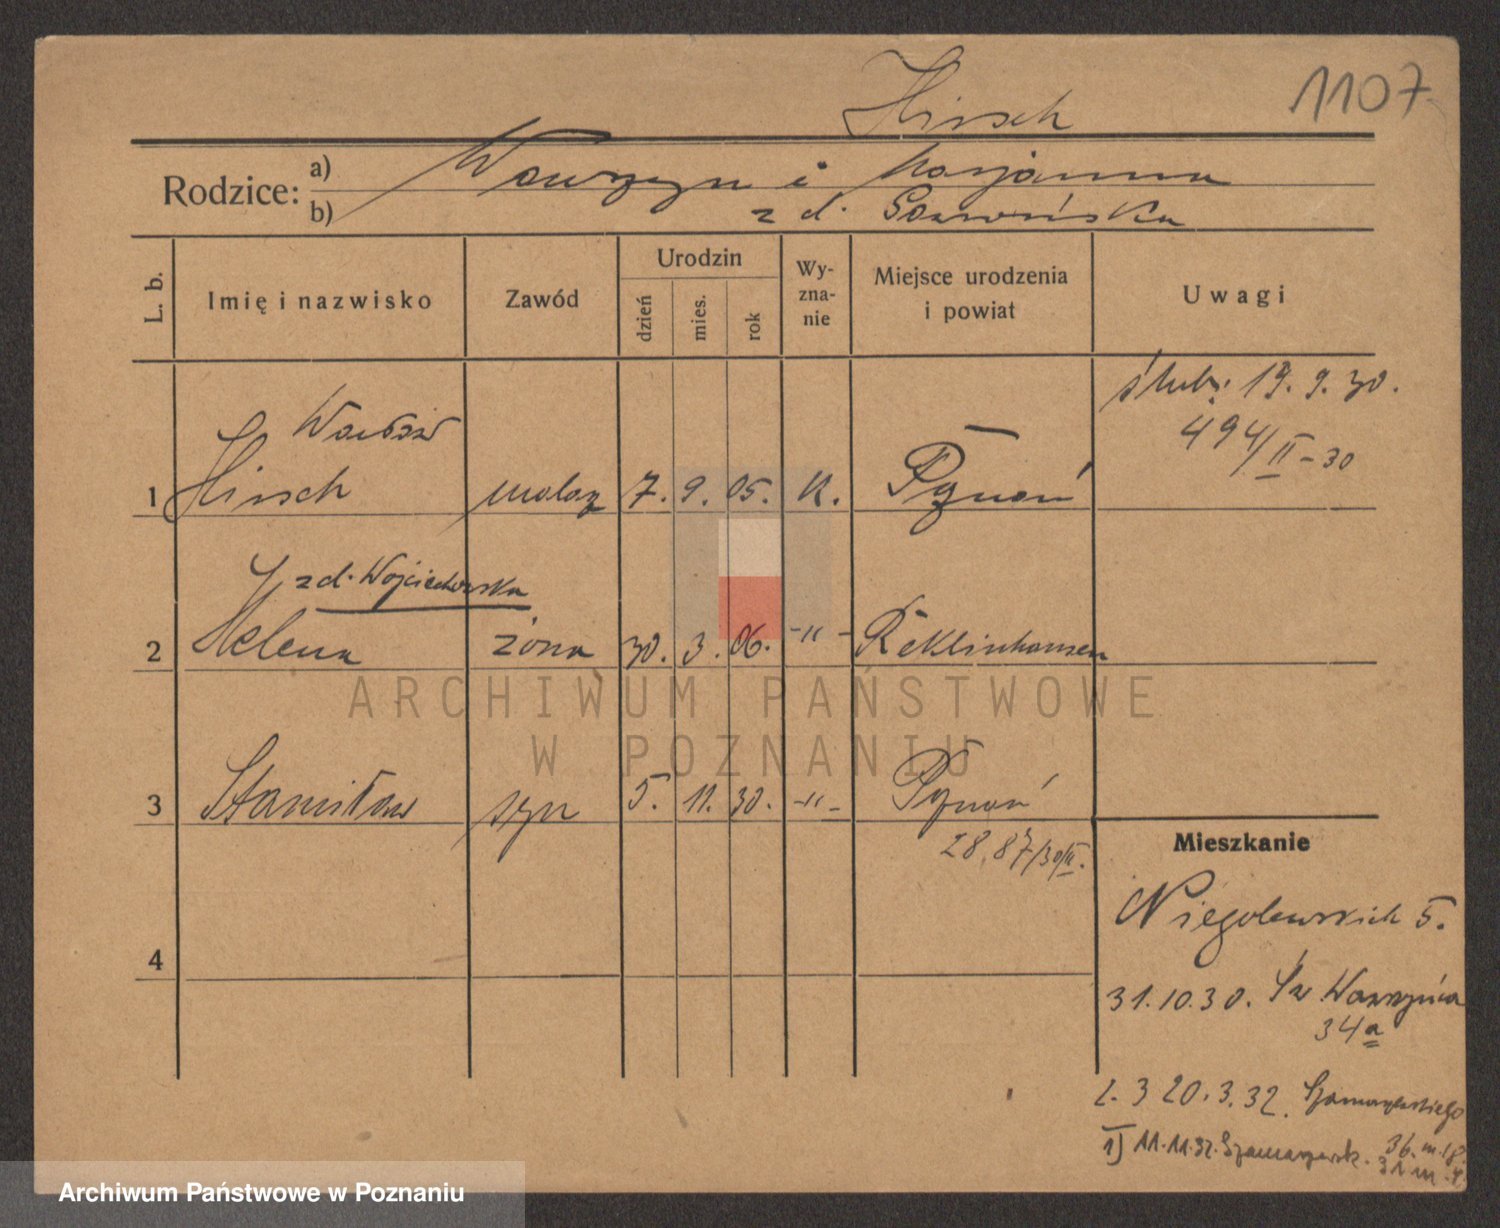 Hirsch
1107
Rodzice:
a) Wawrzyn i Marjanna
b) z d.
L. b.
Imię i nazwisko
Zawód
Urodzin
dzień
mies.
rok
Wy-
zna-
nie
Miejsce urodzenia
i powiat
Uwagi
ślub: 19. 9. 30.
494/II-30
Wacław
1 Hirsch malarz 7. 9. 05. k. Poznań
z d. Wojciechowska
2 Helena żona 30. 3. 06. -"- Reklinhausen
ARCHIWUM PAŃSTWOWE
W POZNANIU
3 Stanisław syn 5. 11. 30. -"- Poznań
28.87/30/II.
4
Mieszkanie
Niegolewskich 5.
31.10.30. Św Wawrzyńca
34a
2. 3 20.3.32. Szamarzewskiego
36. m. 18.
1) 11.11.32. Szamarzewsk.
31 m. 4.
Archiwum Państwowe w Poznaniu